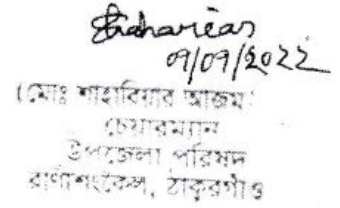 Shaharier
09/09/2022
(মোঃ শাহারিয়ার আজম)
চেয়ারম্যান
উপজেলা পরিষদ
রাণীশংকৈল, ঠাকুরগাঁও